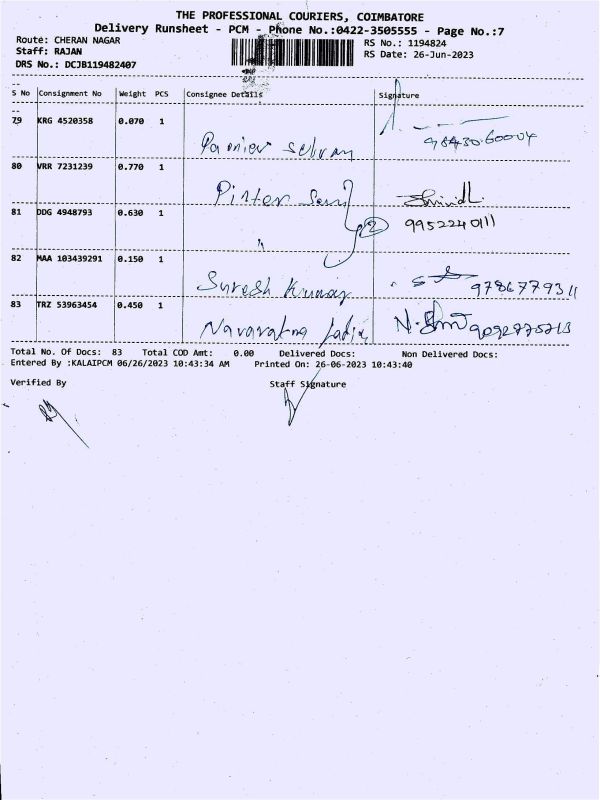 THE PROFESSIONAL COURIERS, COIMBATORE
Delivery Runsheet - PCM - Phone No.:0422-3505555 - Page No.:7
Route: CHERAN NAGAR RS No.: 1194824
Staff: RAJAN RS Date: 26-Jun-2023
DRS No.: DCJB119482407
S No Consignment No Weight PCS Consignee Details Signature
79 KRG 4520358 0.070 1
Pannier selvam 9843060004
80 VRR 7231239 0.770 1
81 DDG 4948793 0.630 1 2 9952240111
82 MAA 103439291 0.150 1
Suresh Kumar 9786779311
83 TRZ 53963454 0.450 1
Navaratna
Total No. Of Docs: 83 Total COD Amt: 0.00 Delivered Docs: Non Delivered Docs:
Entered By :KALAIPCM 06/26/2023 10:43:34 AM Printed On: 26-06-2023 10:43:40
Verified By Staff Signature